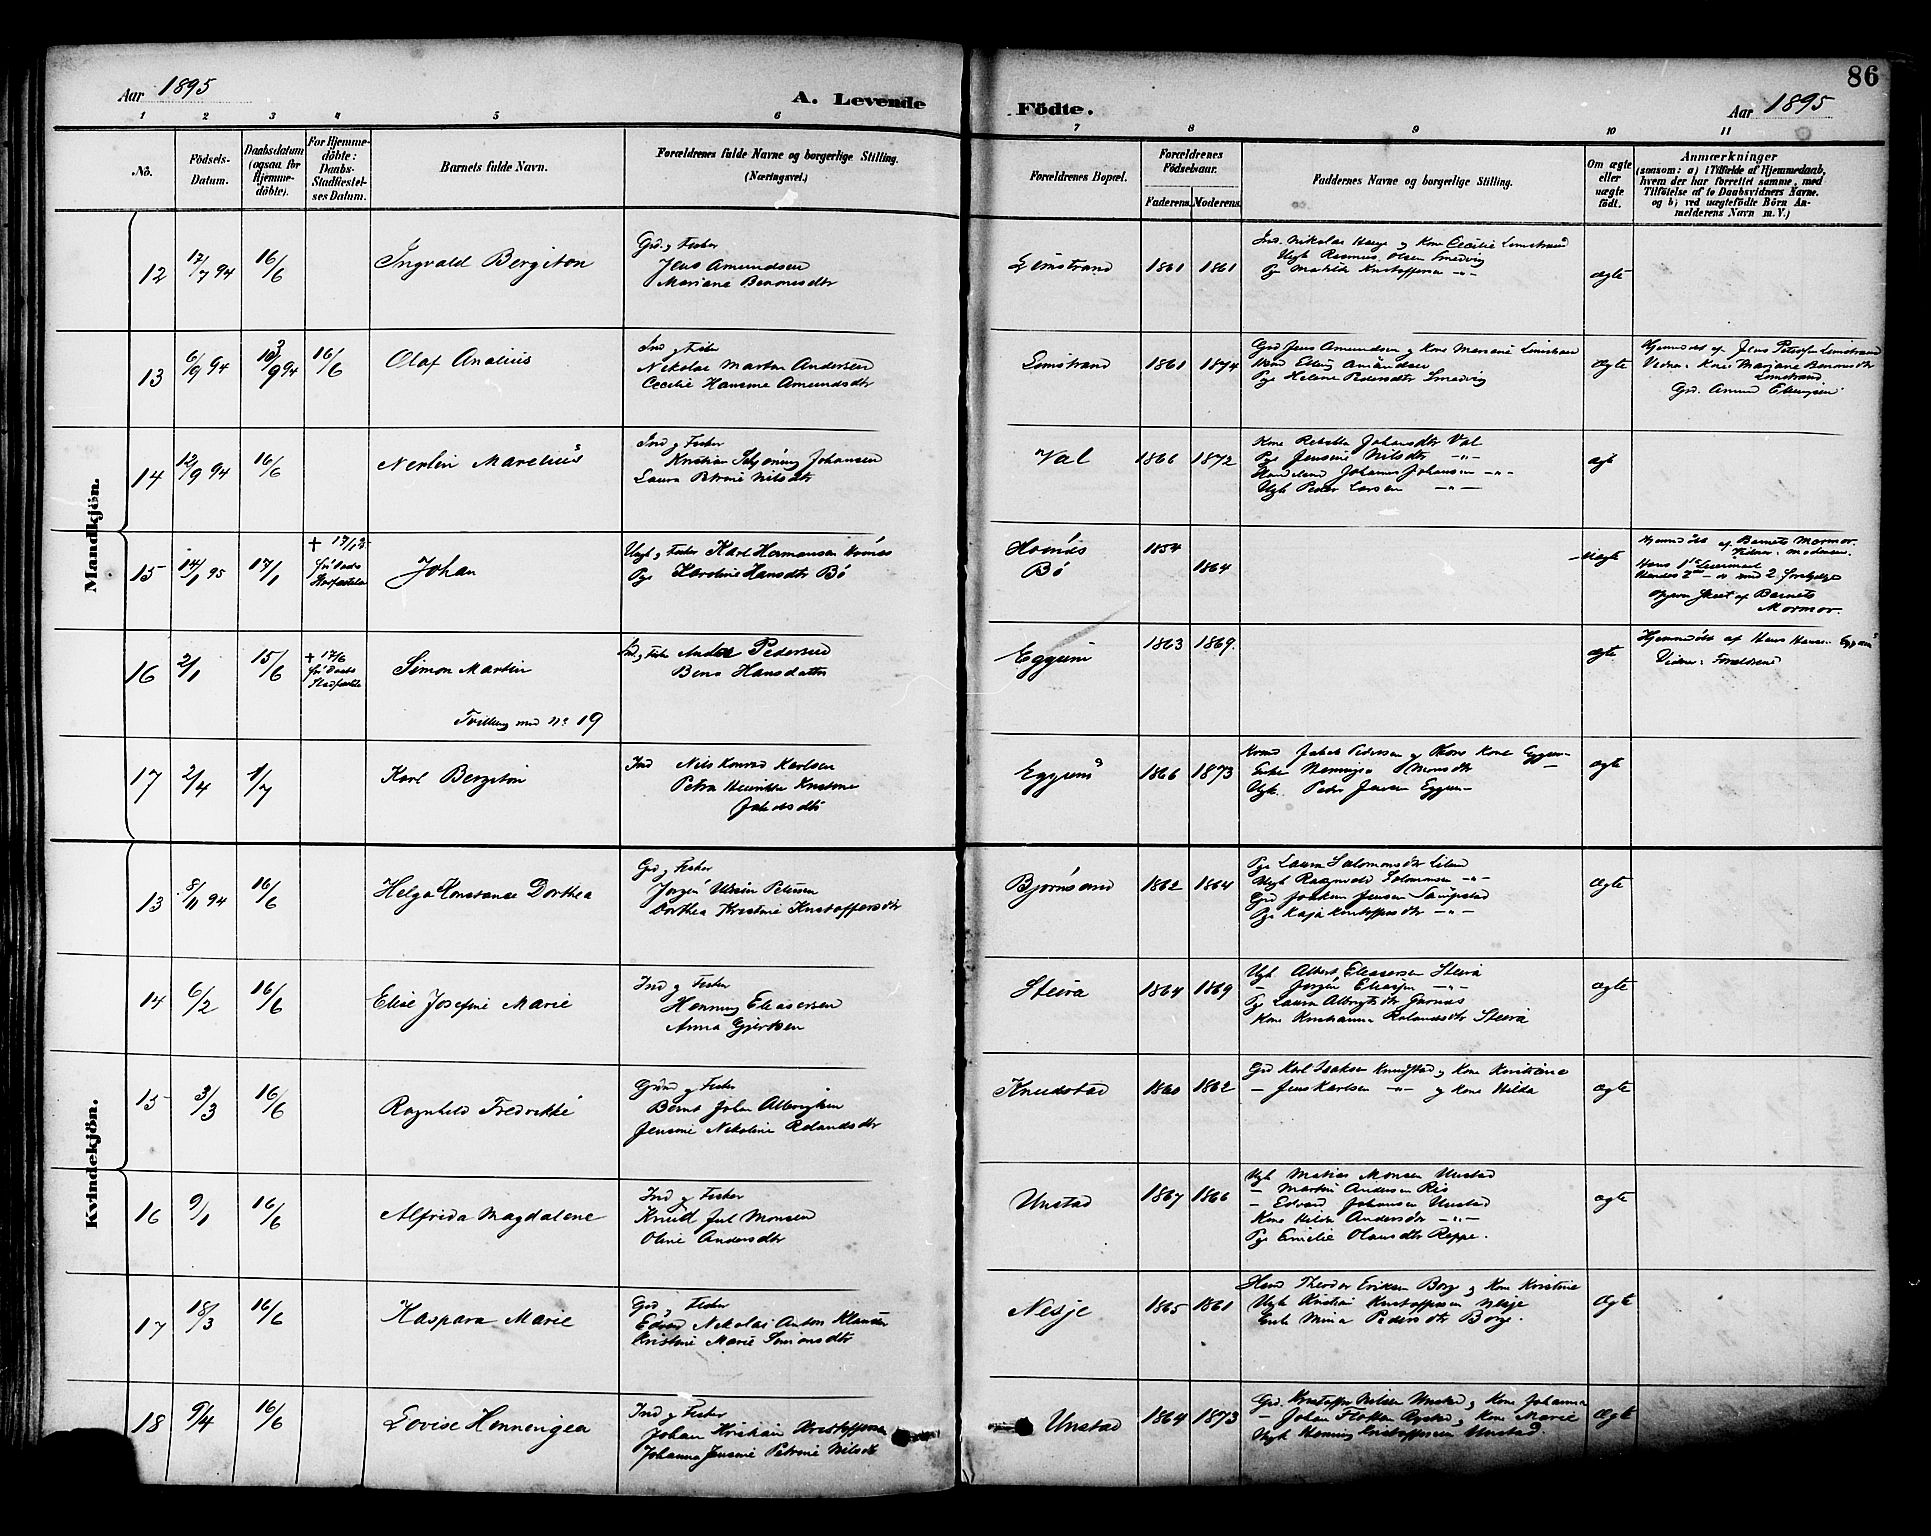 86
Aar 1895
A. Levende
Födte.
Aar 1895
1 2 3 4 5 6 7 8 9 10 11
No.
Födsels-
Datum.
Daabsdatum
(ogsaa for
Hjemme-
döbte).
For Hjemme-
döbte:
Daabs-
Stadfæstel-
ses Datum.
Barnets fulde Navn.
Forældrenes fulde Navne og borgerlige Stilling.
(Næringsvei.)
Forældrenes Bopæl.
Forældrenes
Födselsaar.
Faderens. Moderens.
Faddernes Navne og borgerlige Stilling.
Om ægte
eller
uægte
födt.
Anmærkninger
(saasom: a) i Tilfælde af Hjemmedaab,
hvem der har forrettet samme, med
Tilföielse af to Daabsvidners Navne.
og b) ved uægtefödte Börn An-
melderens Navn m. V.)
Mandkjön.
12 12/7 94 16/6 Ingvald Bergiton
Grd. og Fisker
Jens Amundsen
Mariane Benonisdtr
Limstrand 1861 1861
Ind. Nikolai Hauge og Kone Cecilie Limstrand
Ugk Rasmus Olsen Smedvig
Pge Matilde Kristoffersen -"-
ægte
13 6/9 94 10/9 94 16/6 Olaf Analius
Ind og Fisker
Nikolai Martin Andersen
Cecilie Hansine Amundsdtr
Limstrand 1861 1874
Grd Jens Amundsen og Kone Mariane Limstrand
Pge Helene Pedersdtr Smedvig
ægte
Hjemmedöbt af Jens Petersen Limstrand
Vidner: Kone Mariane Benonisdtr
Limstrand
Grd. Amund Ellingsen
14 12/9 94 16/6 Nerlin Marelius
Ind og Fisker
Kristian Schjöning Johansen
Laura Petrine Nilsdtr
Val 1866 1872
Kone Rebekka Johansdtr Val
Pge Jensine Nilsdtr -"-
Handelsmd Johannes Johansen -"-
Ugk Peder Larsen -"-
ægt
15 14/1 95 17/1 † 17/1
för Daabs
Stadfæstelse
Johan
Ugk og Fisker Karl Hermansen Hovnæs
Pge Karoline Hansdtr Bö
Hovnæs
Bö
1854
1864
Uægte
Hjemmedöbt af Barnets Mormor.
Vidner: moderen.
Hans 1ste Leiermaal
Hendes 2det - " - med 2. forskjellige
Opgaven skeet af Barnets
Mormor.
16 2/1 15/6 † 17/6
för Daabs
Stadfæstelse
Simon Martin
Tvilling med No 19
Ind. og Fisker Andor Pedersen
Berit Hansdatter
Eggum 1863 1869.
ægte
Hjemmedöbt af Hans Hansen Eggum
Vidner: Forældrene
17 2/4 1/7 Karl Bergiton
Ind Nils Konrad Karlsen
Petra Henrikke Kristine
Jakobsdtr
Eggum 1866 1873
Jakob Pedersen og Kone Eggum
Enke Henninga Monsdtr -
Ugk. Peder Jensen Eggum
ægte
Kvindekjön.
13 8/11 94 16/6 Helga Konstanse Dorthea
Grd og Fisker
Jörgen Ulrein Petersen
Dorthea Kristine Kristoffersdtr
Bjørnsand 1862 1864
Pge Laura Salomonsdtr Liland
Ugk Ragnvald Salomonsen -"-
Grd Joakim Jensen Saupstad
Pge Kaja Kristoffersdtr -"-
ægte
14 6/2 16/6 Elise Josefine Marie
Ind og Fisker
Henning Eleasersen
Anna Gjertsen
Steira 1864 1869
Ugk Albert Eleasersen Steira
- Jörgen Eliasen -"-
Pge Laura Albrigtsdtr Jurnæs
Kone Kristianna Rolandsdtr Steira
ægte
15 3/3 16/6 Ragnhild Fredrikke
Grd og Fisker
Bernt Johan Albrigtsen
Jensine Nikoline Rolandsdtr
Knudstad 1860 1862
Grd Karl Isaksen Knudstad og Kone Kristiane
- Jens Karlsen -"- og Kone Hilda
ægte
16 9/1 16/6 Alfrida Magdalene
Ind og Fisker
Knud Jul Monsen
Oline Andersdtr
Unstad 1867 1866
Ugk Matias Monsen Unstad
- Martin Andersen Ris
- Edvard Johansen Unstad
Kone Hilda Andersdtr -"-
Pge Emelie Olausdtr Reppe.
ægte
17 18/3 16/6 Kaspara Marie
Grd og Fisker
Edvard Nikolai Anton Klausen
Kristine Marie Simonsdtr
Nesje 1865 1861
Hand Theodor Eriksen Borg og Kone Kristine
Ugk Kristian Kristoffersen Nesje
Enke Mina Pedersdtr Borge.
ægte
18 9/4 16/6 Lovise Henningea
Ind og Fisker
Johan Kristian Kristoffersen
Johanna Jensine Petrine Nilsdtr
Unstad 1864 1873
Grd. Kristoffer Nilsen Unstad og Kone Johanna
- Johan Flokken Rystad og Kone Marie
Ugk Henning Kristoffersen Unstad.
ægte